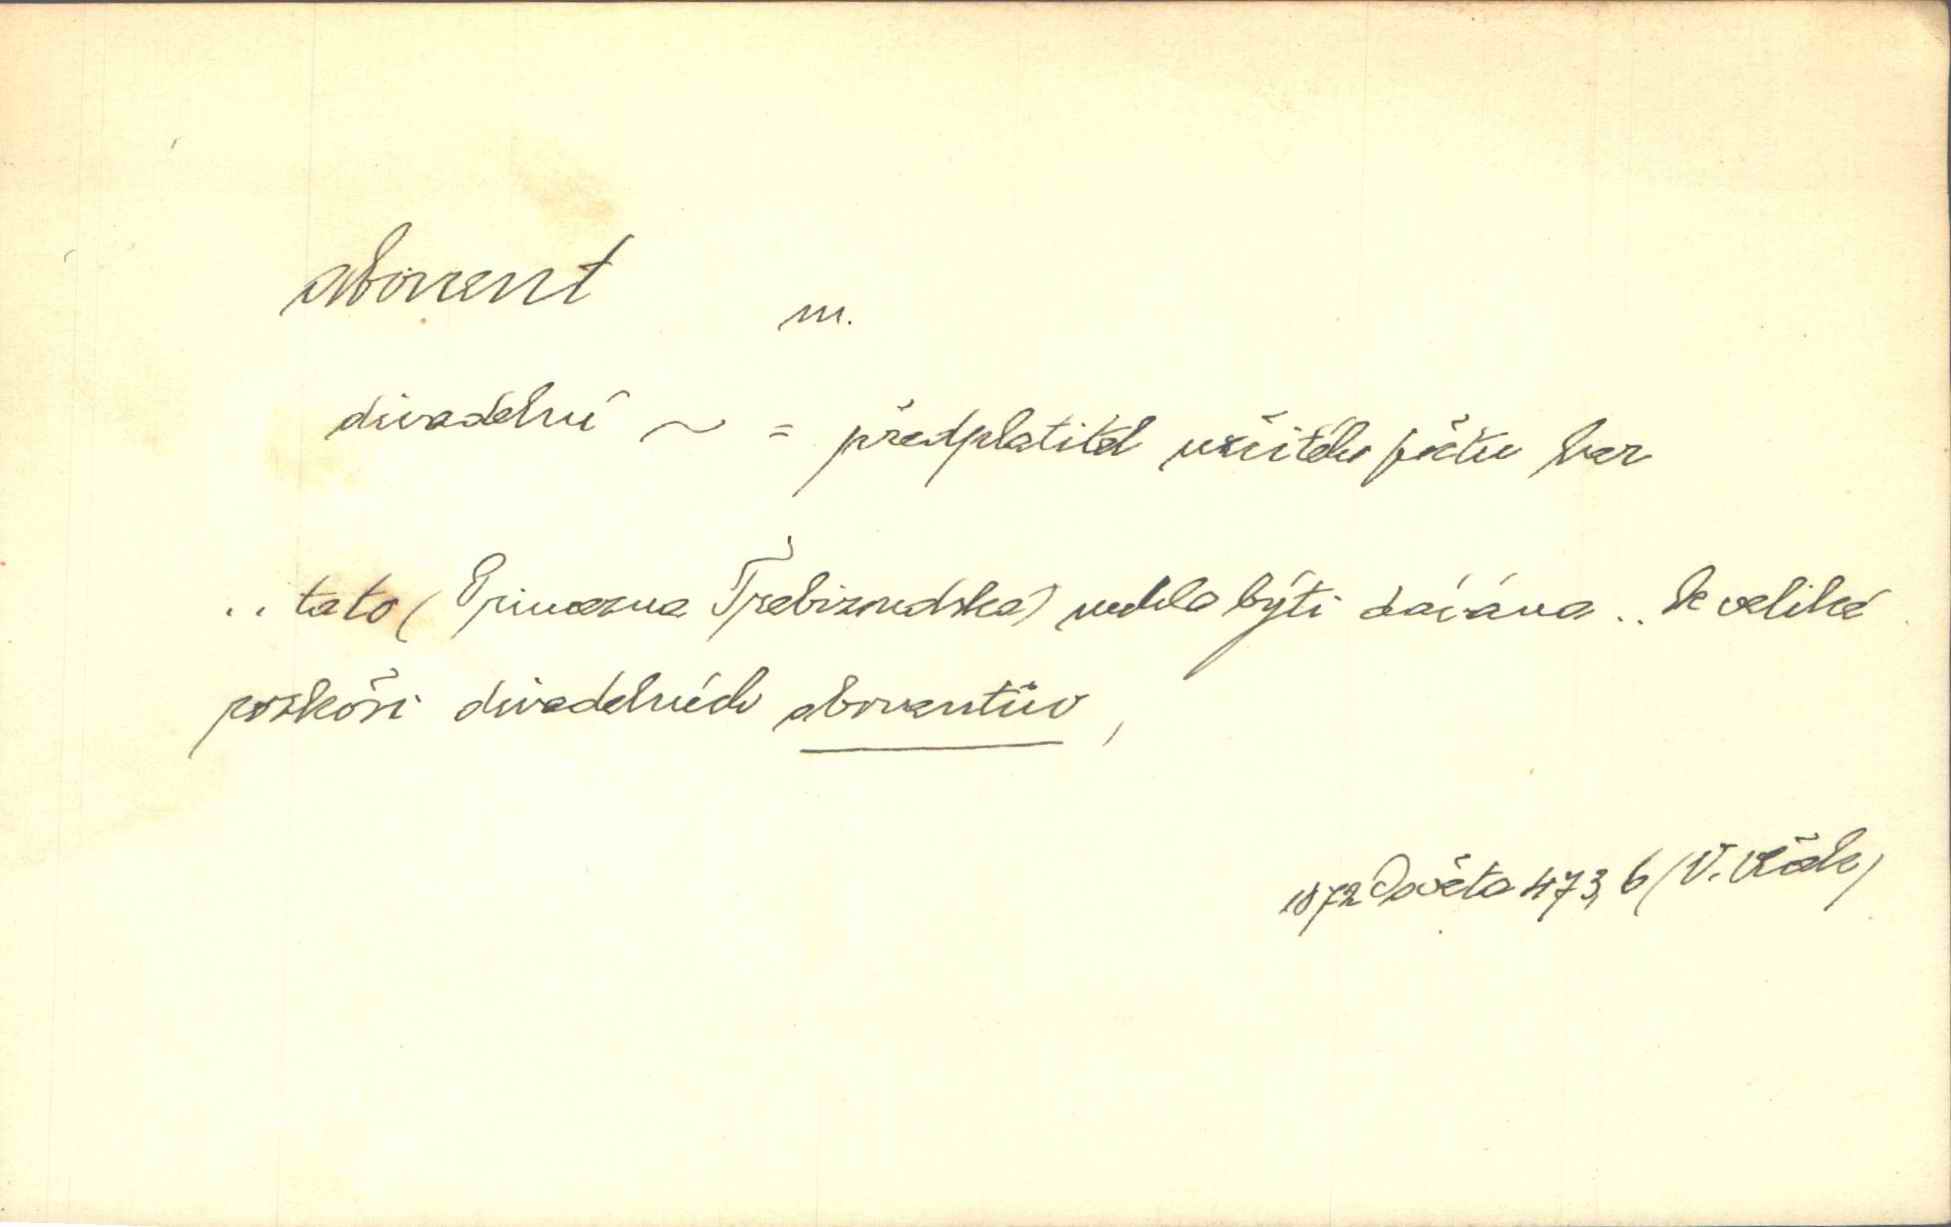 abonent m.
divadelní ~ = předplatitel určitého počtu her
.. tato (Princezna Trebizondská) mohla býti dávána .. k veliké
rozkoši divadelních abonentův,
1872 Osvěta 473, 6 (V. Vlček)